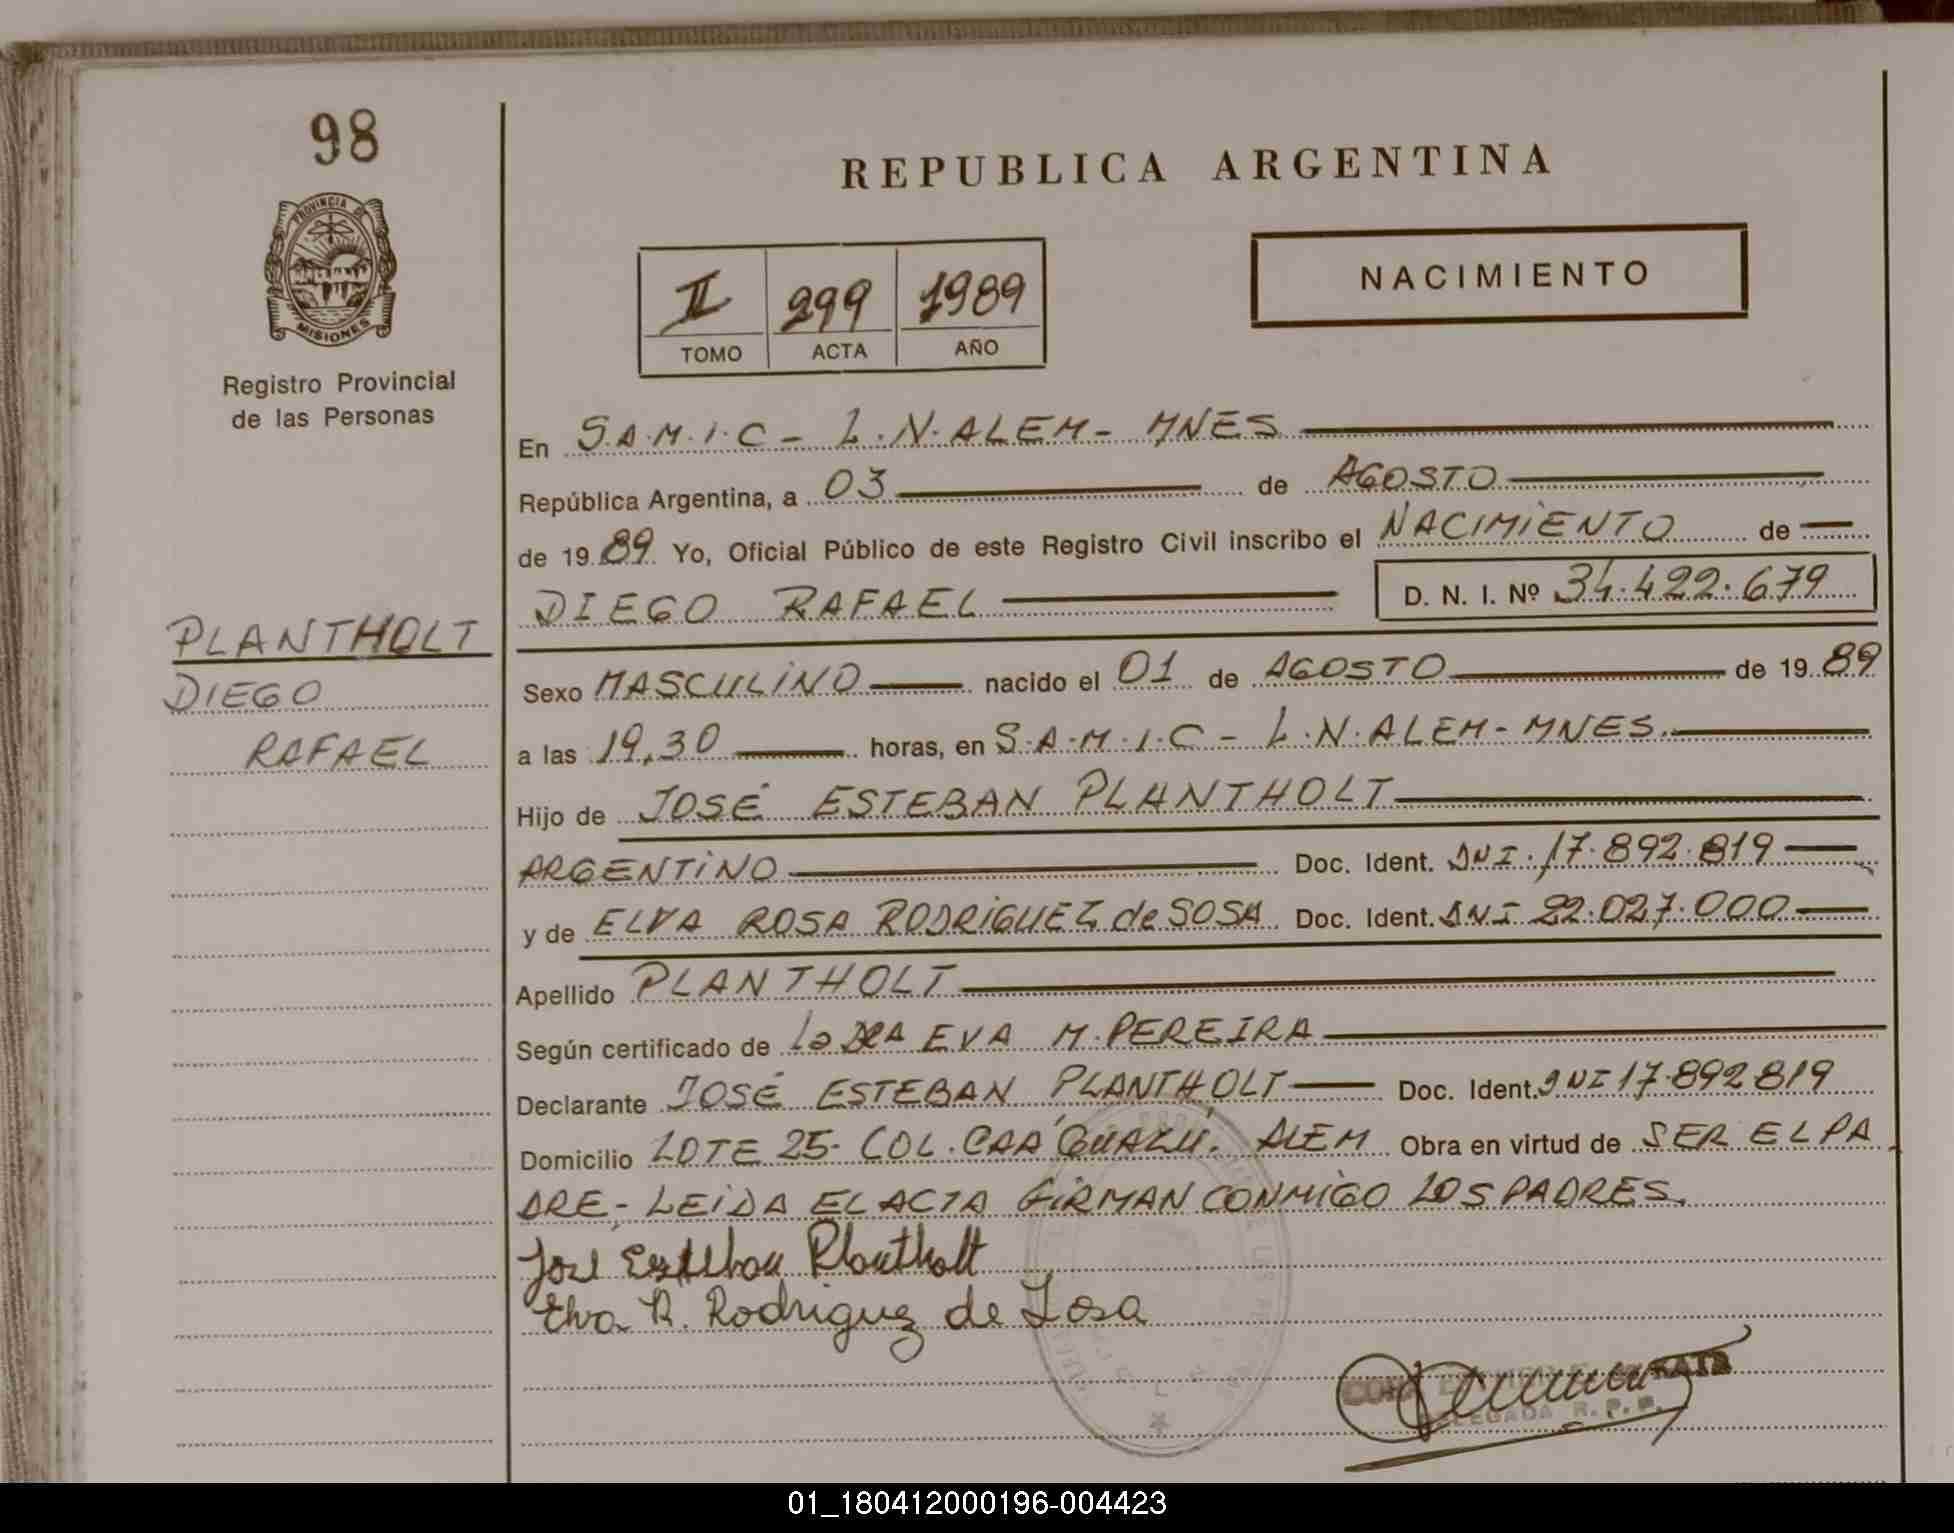 98
REPUBLICA ARGENTINA
PROVINCIA DE
MISIONES
Registro Provincial
de las Personas
II 299 1989
TOMO ACTA AÑO
NACIMIENTO
En S.A.M.I.C - L.N.ALEM - MNES
República Argentina, a 03 de AGOSTO
de 1989 Yo, Oficial Público de este Registro Civil inscribo el NACIMIENTO de
DIEGO RAFAEL D. N. I. Nº 34.422.679
PLANTHOLT
DIEGO
RAFAEL
Sexo MASCULINO nacido el 01 de AGOSTO de 1989
a las 19,30 horas, en S.A.M.I.C - L.N.ALEM - MNES.
Hijo de JOSÉ ESTEBAN PLANTHOLT
ARGENTINO Doc. Ident. DNI. 17.892.819
y de ELVA ROSA RODRIGUEZ de SOSA Doc. Ident. DNI 22.027.000
Apellido PLANTHOLT
Según certificado de La DRA EVA M. PEREIRA
Declarante JOSÉ ESTEBAN PLANTHOLT Doc. Ident. DNI 17.892819
Domicilio LOTE 25- COL. CAA GUAZÚ. ALEM Obra en virtud de SER EL PA
DRE - LEIDA EL ACTA FIRMAN CONMIGO LOS PADRES.
José Esteban Plantholt
Elva R. Rodriguez de Sosa
DELEGADA R. P. P.
01_180412000196-004423